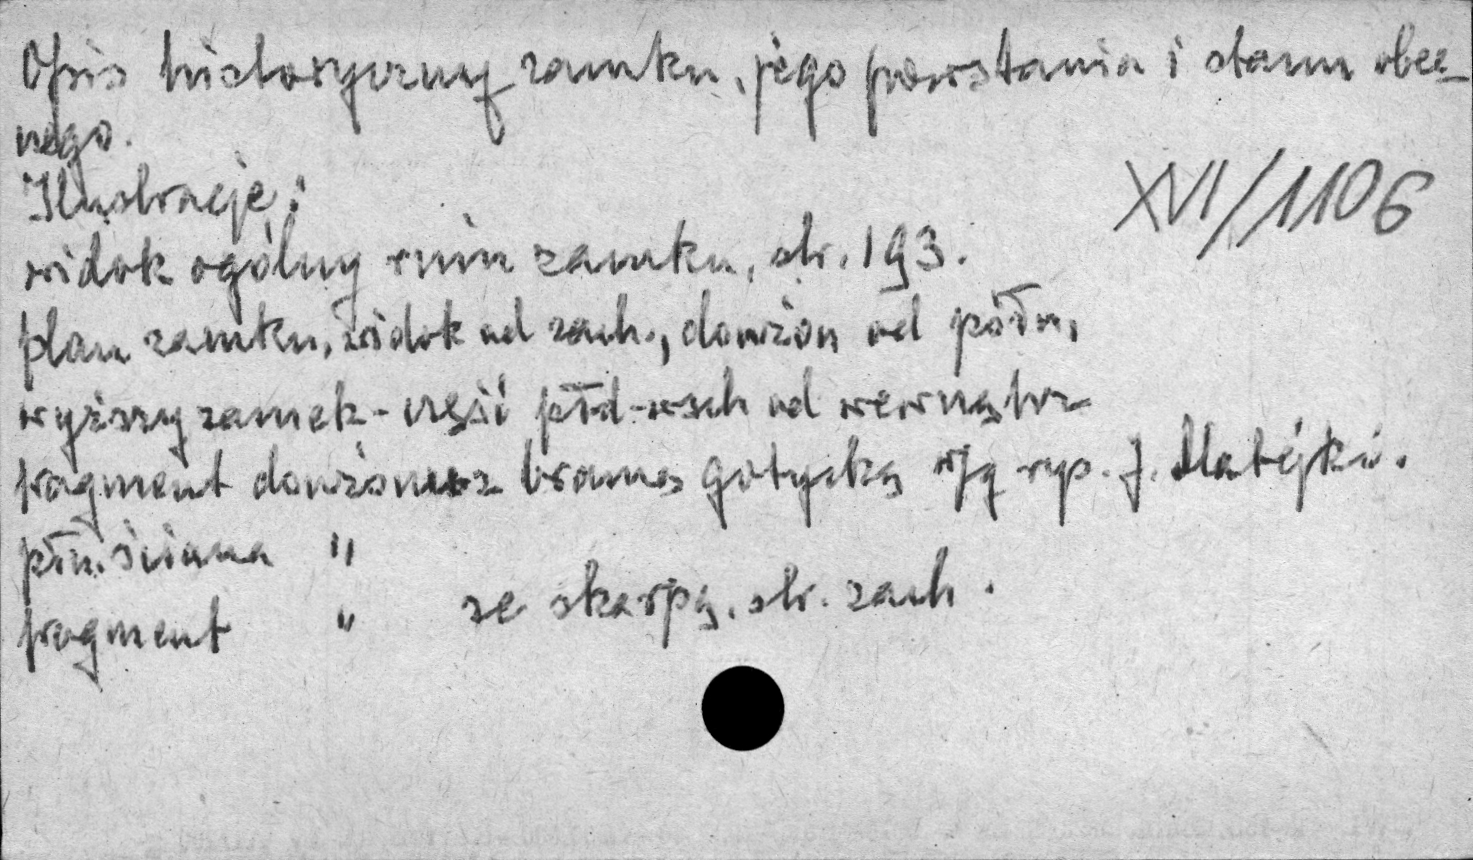 Opis historyczny zamku, jego powstania i stanu obec-
nego.
XVI/1106
Ilustracje:
widok ogólny ruin zamku, str. 193.
plan zamku, widok od zach., donżon od półn,
wyższy zamek - część płd-wsch od wewnątrz
fragment donżonu z bramą gotycką wg rys. J. Matejki.
płn. ściana "
fragment " ze skarpą, str. zach.